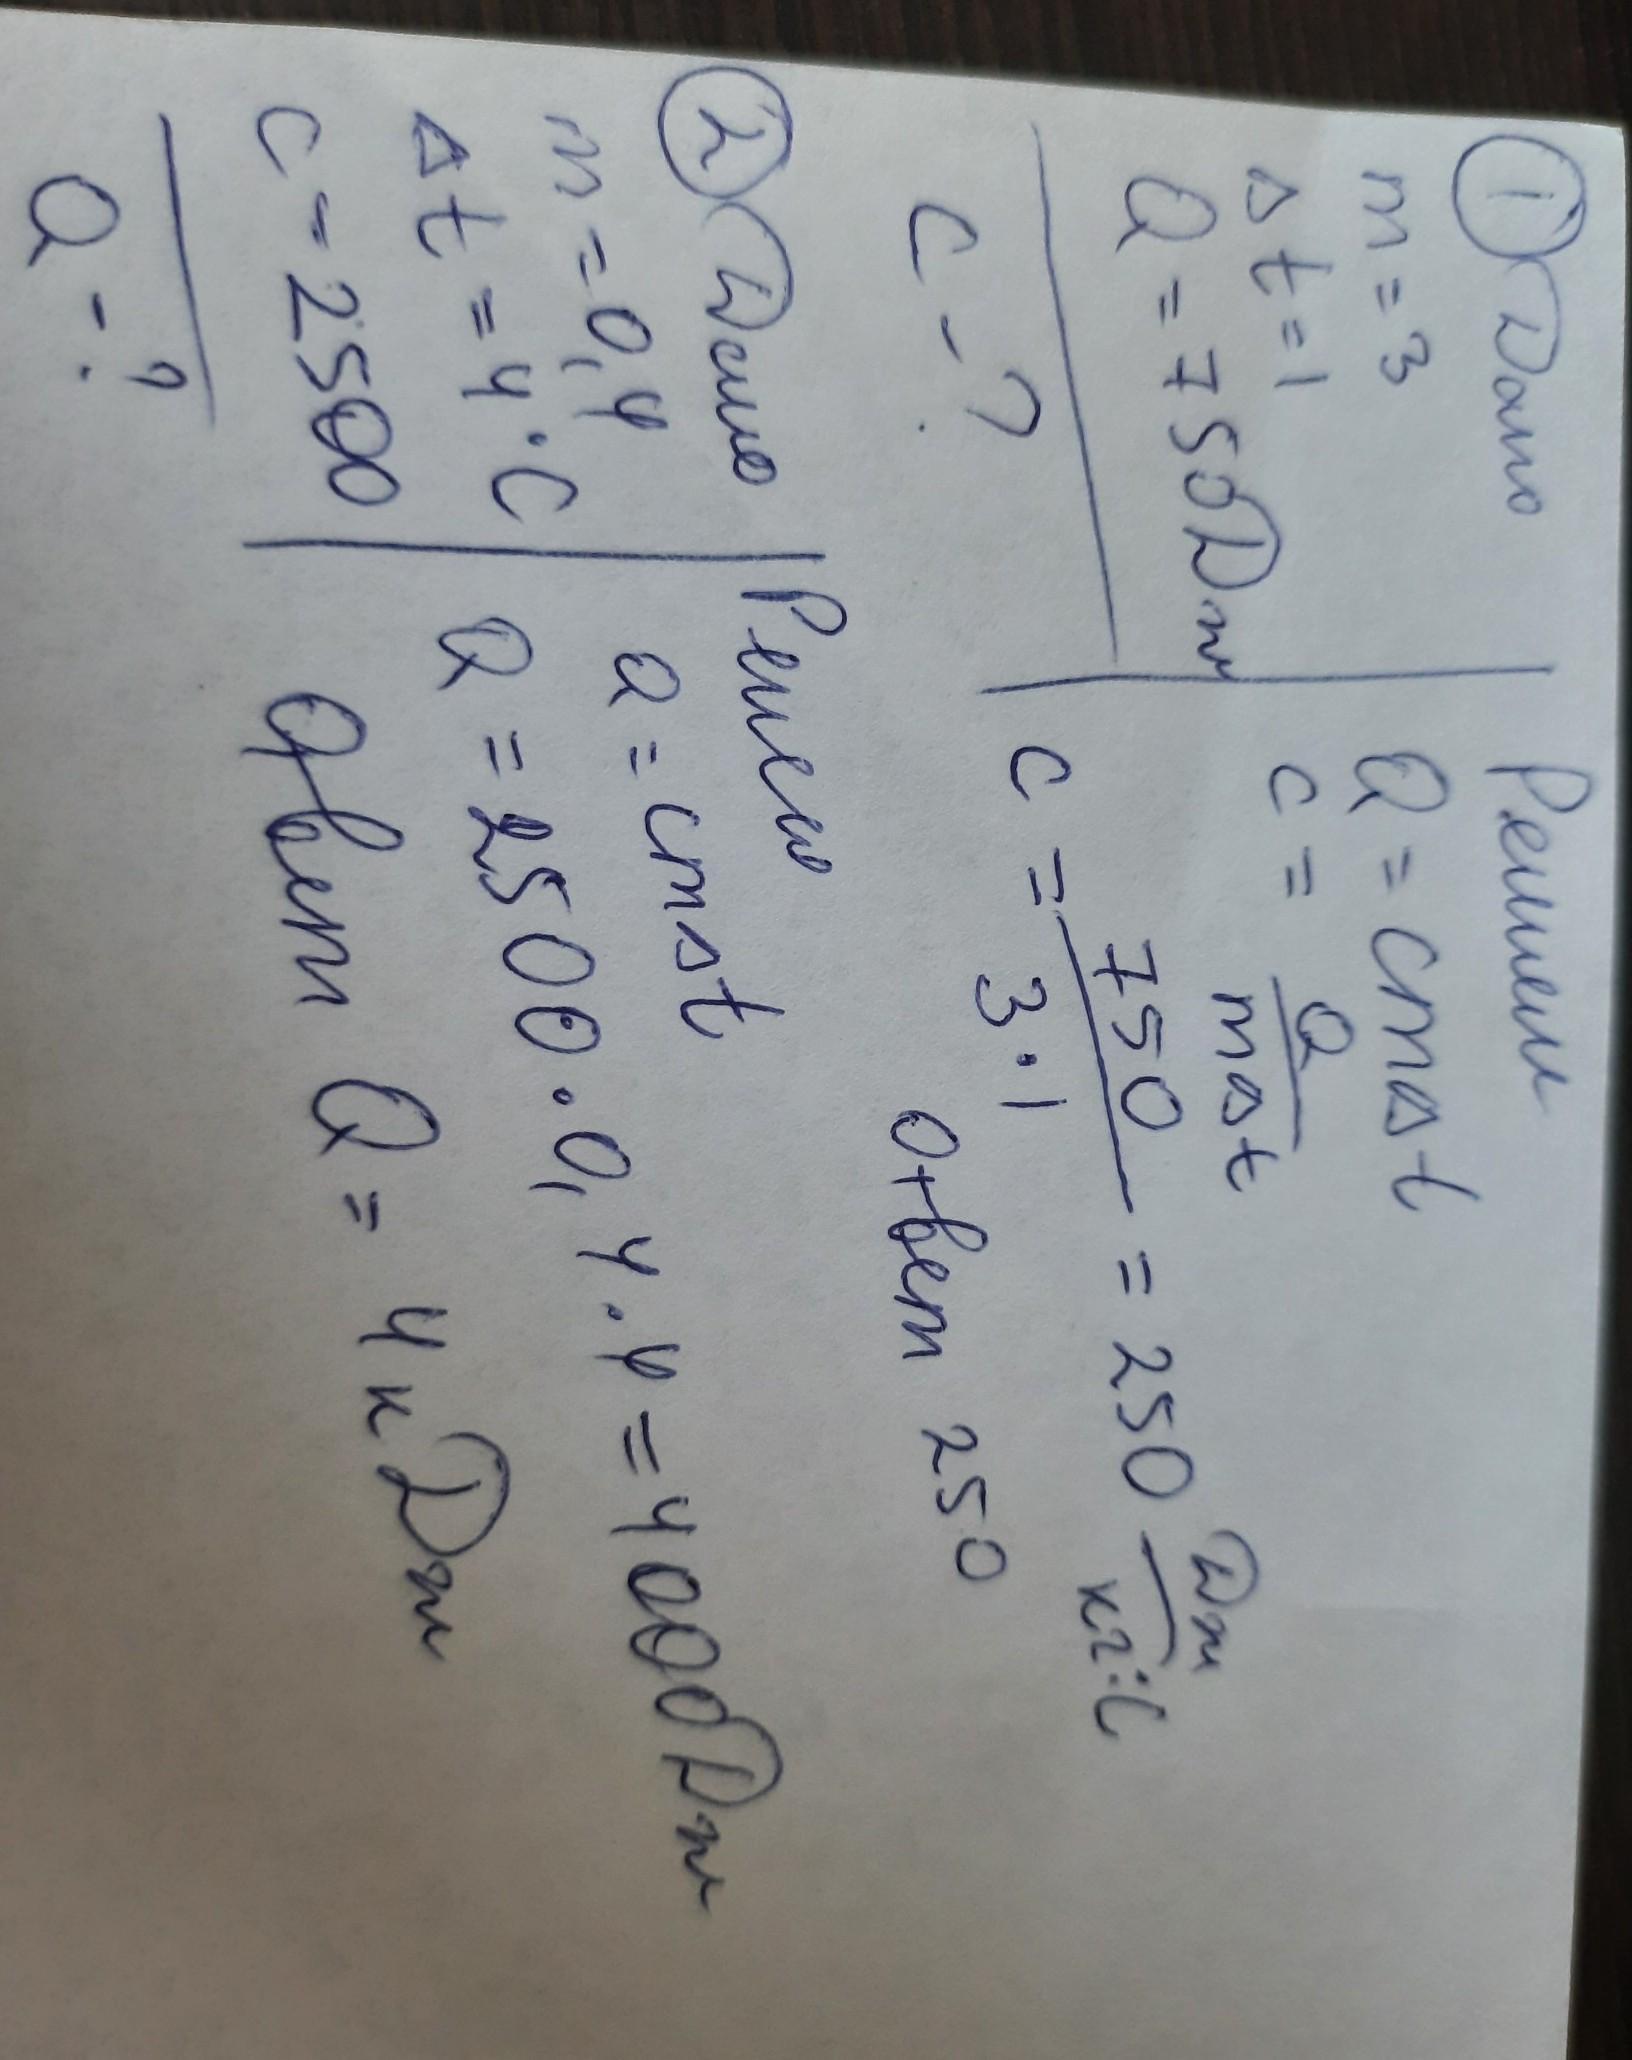 ① Дано
m = 3
Δt = 1
Q = 750 Дж
c - ?
Решени
Q = cmΔt
c = Q / mΔt
c = 750 / 3·1 = 250 Дж / кг·°C
Ответ 250
② Дано
m = 0,4
Δt = 4°C
c - 2500
Q - ?
Решение
Q = cmΔt
Q = 2500·0,4·4 = 4000 Дж
Ответ Q = 4 кДж